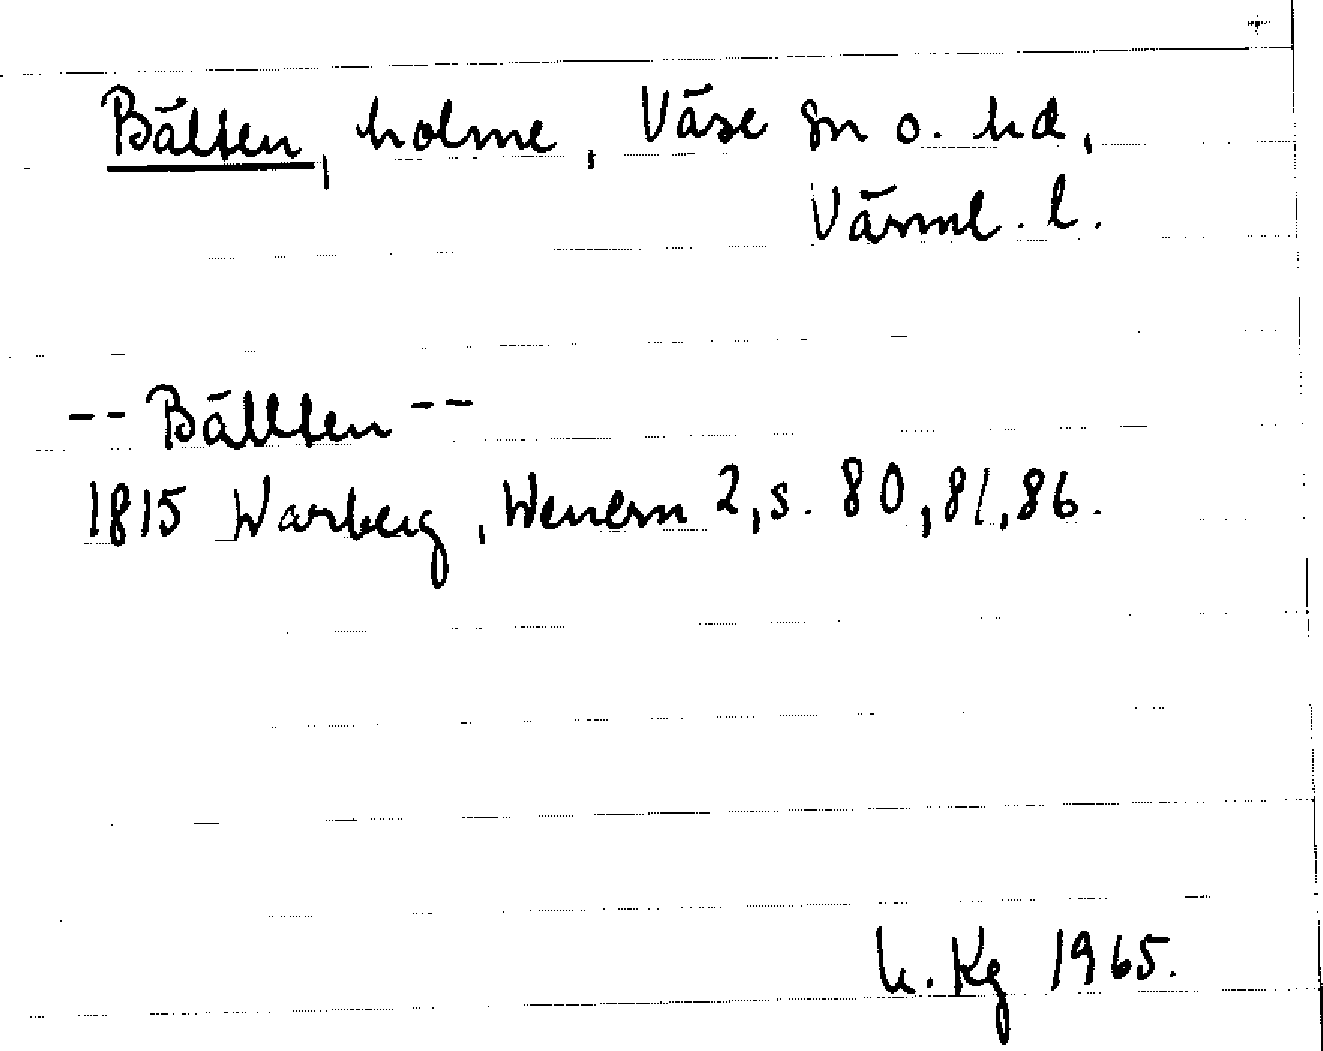 Bälten, holme, Väse sn o. hd,
Värml. l.
-- Bällten --
1815 Warberg, Wenern 2, s. 80, 81, 86.
h. Kg 1965.